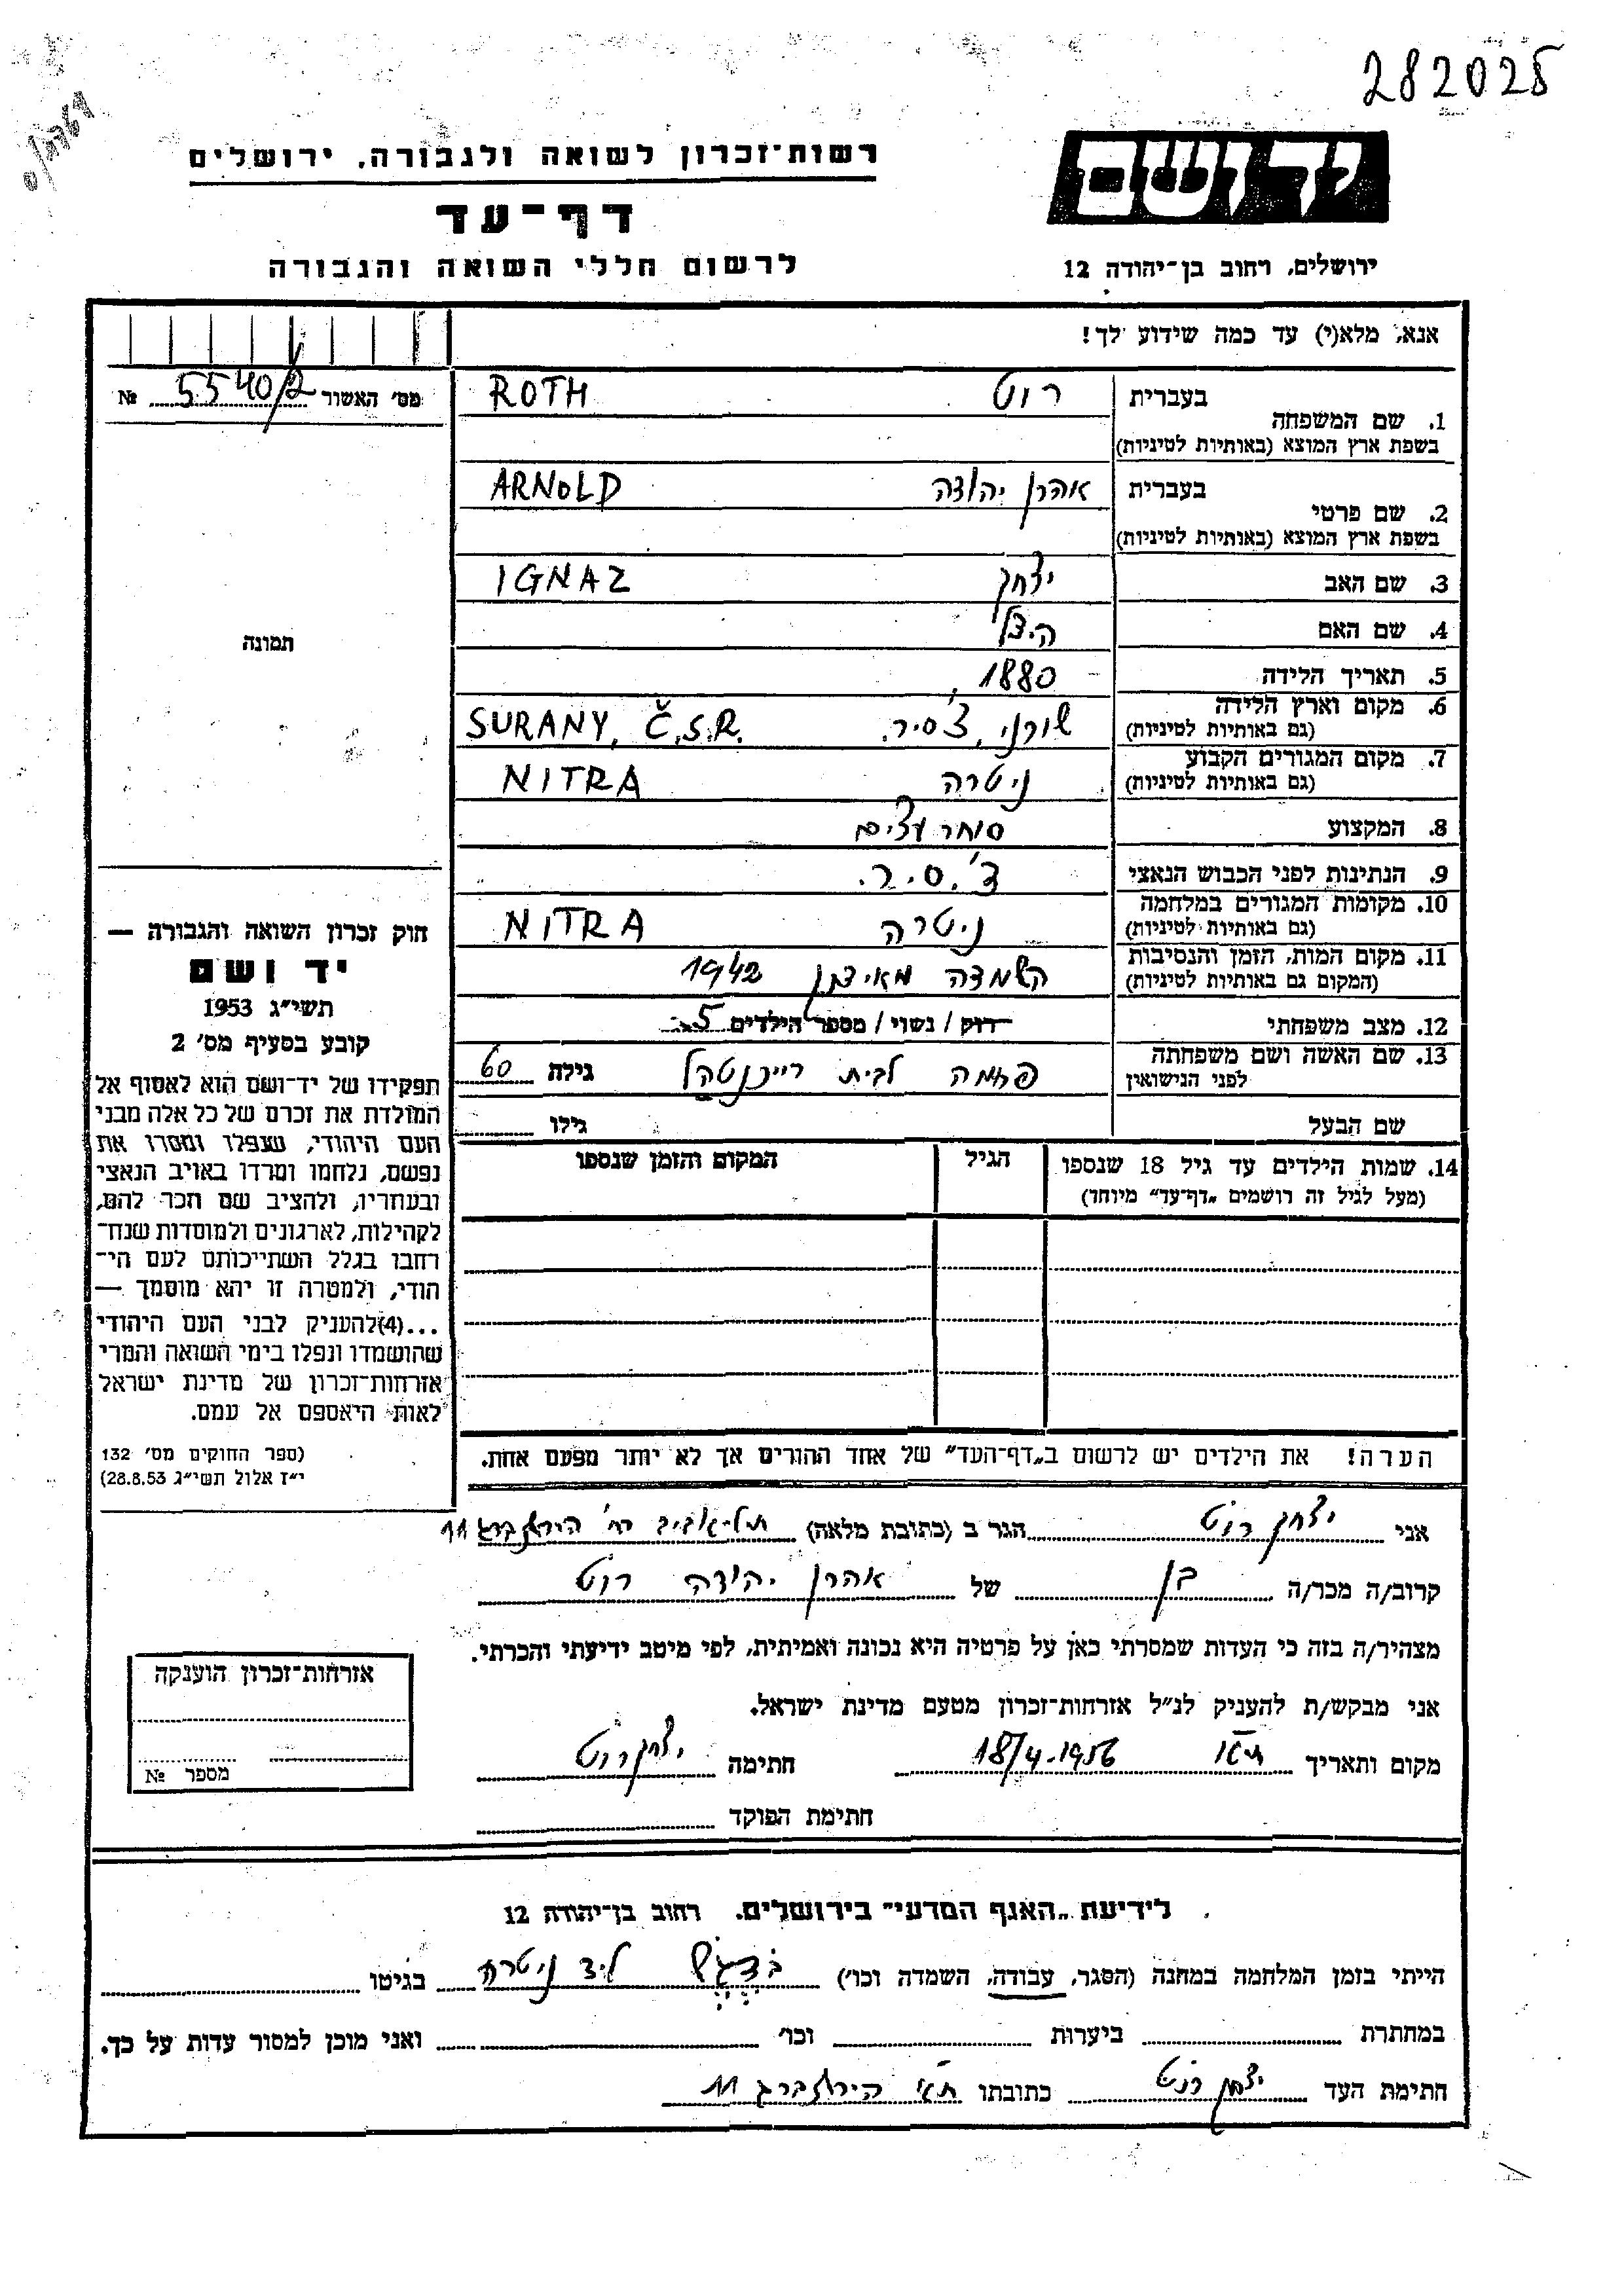 282025
רשות־זכרון לשואה ולגבורה, ירושלים
יד ושם
דף־עד
ירושלים, רחוב בן־יהודה 12
לרשום חללי השואה והגבורה
אנא, מלא(י) עד כמה שידוע לך!
מס׳ האשור 5540/2 №
תמונה
בעברית רוט ROTH
1. שם המשפחה
בשפת ארץ המוצא (באותיות לטיניות)
בעברית אהרן יהודה ARNOLD
2. שם פרטי
בשפת ארץ המוצא (באותיות לטיניות)
3. שם האב יצחק IGNAZ
4. שם האם
5. תאריך הלידה 1880
6. מקום וארץ הלידה שורני, צ׳.ס.ר. SURANY, Č.S.R.
(גם באותיות לטיניות)
7. מקום המגורים הקבוע ניטרה NITRA
(גם באותיות לטיניות)
8. המקצוע סוחר עצים
9. הנתינות לפני הכבוש הנאצי צ׳.ס.ר.
10. מקומות המגורים במלחמה ניטרה NITRA
(גם באותיות לטיניות)
11. מקום המות, הזמן והנסיבות השמדה 1942
(המקום גם באותיות לטיניות)
12. מצב משפחתי רוק / נשוי / מספר הילדים 5
13. שם האשה ושם משפחתה לבית רייכנטהל גילה 60
לפני הנישואין
שם הבעל גילו
14. שמות הילדים עד גיל 18 שנספו הגיל המקום והזמן שנספו
(מעל לגיל זה רושמים „דף־עד״ מיוחד)
הערה! את הילדים יש לרשום ב„דף־העד״ של אחד ההורים אך לא יותר מפעם אחת.
חוק זכרון השואה והגבורה —
יד ושם
תשי״ג 1953
קובע בסעיף מס׳ 2
תפקידו של יד־ושם הוא לאסוף אל
המולדת את זכרם של כל אלה מבני
העם היהודי, שנפלו ומסרו את
נפשם, נלחמו ומרדו באויב הנאצי
ובעוזריו, ולהציב שם וזכר להם,
לקהילות, לארגונים ולמוסדות שנח־
רבו בגלל השתייכותם לעם הי־
הודי, ולמטרה זו יהא מוסמך —
...(4)להעניק לבני העם היהודי
שהושמדו ונפלו בימי השואה והמרי
אזרחות־זכרון של מדינת ישראל
לאות היאספם אל עמם.
(ספר החוקים מס׳ 132
י״ז אלול תשי״ג 28.8.53)
אני יצחק רוט הגר ב (כתובת מלאה) תל־אביב רח׳ הירשנברג 11
קרוב/ה מכר/ה בן של אהרן יהודה רוט
מצהיר/ה בזה כי העדות שמסרתי כאן על פרטיה היא נכונה ואמיתית, לפי מיטב ידיעתי והכרתי.
אני מבקש/ת להעניק לנ״ל אזרחות־זכרון מטעם מדינת ישראל.
מקום ותאריך ת״א 18/4.1956 חתימה יצחק רוט
חתימת הפוקד
אזרחות־זכרון הוענקה
מספר №
לידיעת „האגף המדעי״ בירושלים. רחוב בן־יהודה 12
הייתי בזמן המלחמה במחנה (הסגר, עבודה, השמדה וכו׳) ליד ניטרה בגיטו
במחתרת ביערות וכו׳ ואני מוכן למסור עדות על כך.
חתימת העד יצחק רוט כתובתו ת״א הירשנברג 11